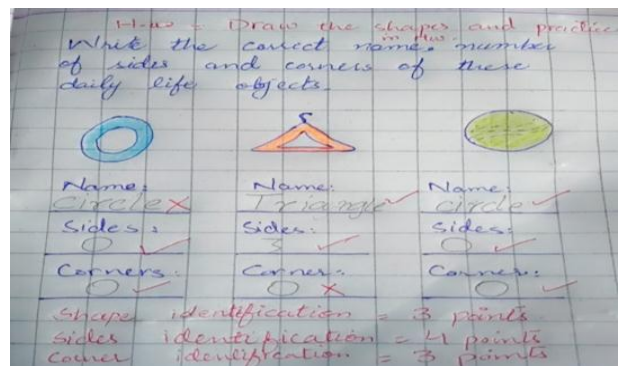 H.w = Draw the shapes and practice
in H.w.
Write the correct name, number
of sides and corners of these
daily life objects.
Name: Name: Name:
circle Triangle circle
Sides: Sides: Sides:
0 3 0
Corners: Corner: Corner:
0 0 0
Shape identification = 3 points
Sides identification = 4 points
Corner identification = 3 points